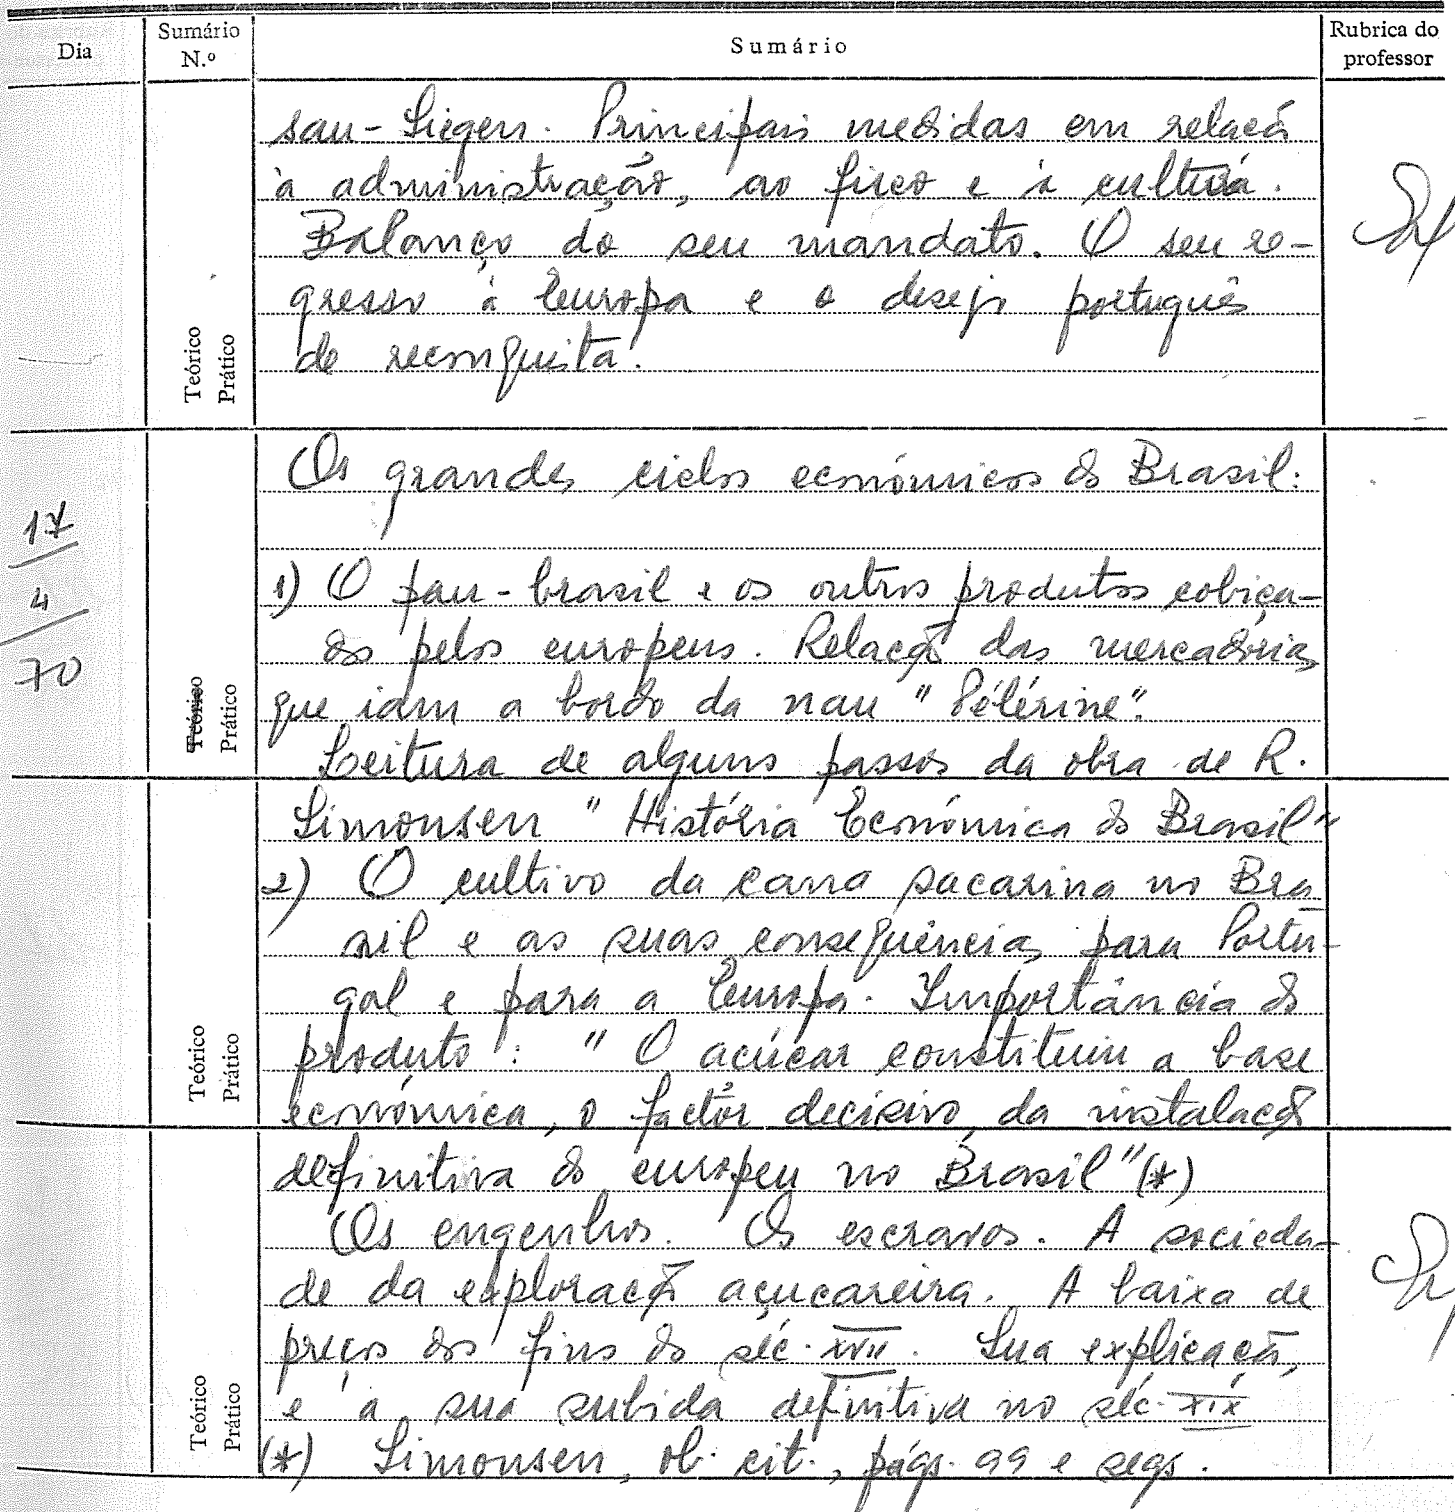 Dia
Sumário N.º
Sumário
Rubrica do professor
sau-Siegen. Principais medidas em relação
à administração, ao fisco e à cultura.
Balanço do seu mandato. O seu re-
gresso à Europa e o desejo português
de reconquista.
Teórico
Prático
17
4
70
Os grandes ciclos económicos do Brasil:
1) O pau-brasil e os outros produtos cobiça-
dos pelos europeus. Relação das mercadorias
que iam a bordo da nau "Pélérine".
Leitura de alguns passos da obra de R.
Teórico
Prático
Simonsen "História Económica do Brasil"
2) O cultivo da cana sacarina no Bra
sil e as suas consequências para Portu-
gal e para a Europa. Importância do
produto: "O açúcar constituiu a base
económica, o factor decisivo, da instalação
Teórico
Prático
definitiva do europeu no Brasil" (*)
Os engenhos. Os escravos. A socieda-
de da exploração açucareira. A baixa de
preços dos fins do séc. XVII. Sua explicação,
e a sua subida definitiva no séc. XIX
(*) Simonsen, ob. cit., págs. 99 e segs.
Teórico
Prático